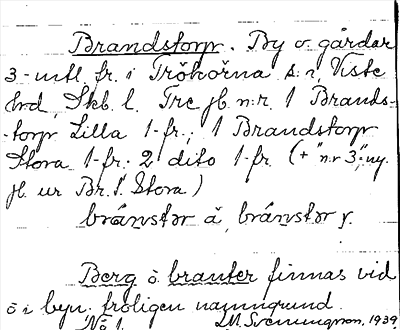 Brandstorp. By o. gårdar
3-mtl. fr. i Trökörna s:n, Viste
hrd, Skb. l. Tre jb. n:r. 1 Brands-
-torp Lilla 1-fr.; 1 Brandstorp
Stora 1-fr. 2 dito 1-fr (+ "n:r 3", ny.
jb. ur Br. t. Stora)
bránstər å, bránstər y.
Berg o branter finnas vid
o i byn. Troligen namngrund.
No 1. M. Svenungson, 1939